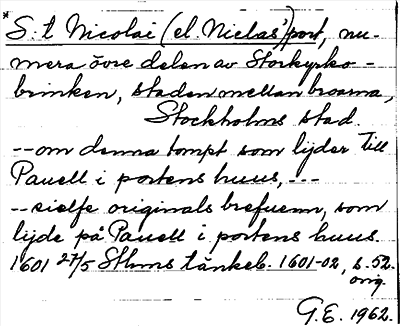 *
S:t Nicolai (el. Niclas')port, nu-
mera övre delen av Storkyrko-
brinken, staden mellan broarna,
Stockholms stad.
--om denna tompt som lijder till
Pauell i portens huus, ---
--sielfe originals brefuenn, som
lijde på Pauell i portens huus.
1601 27/5 Sthms tänkeb. 1601-02, s. 52.
orig.
G.E. 1962.